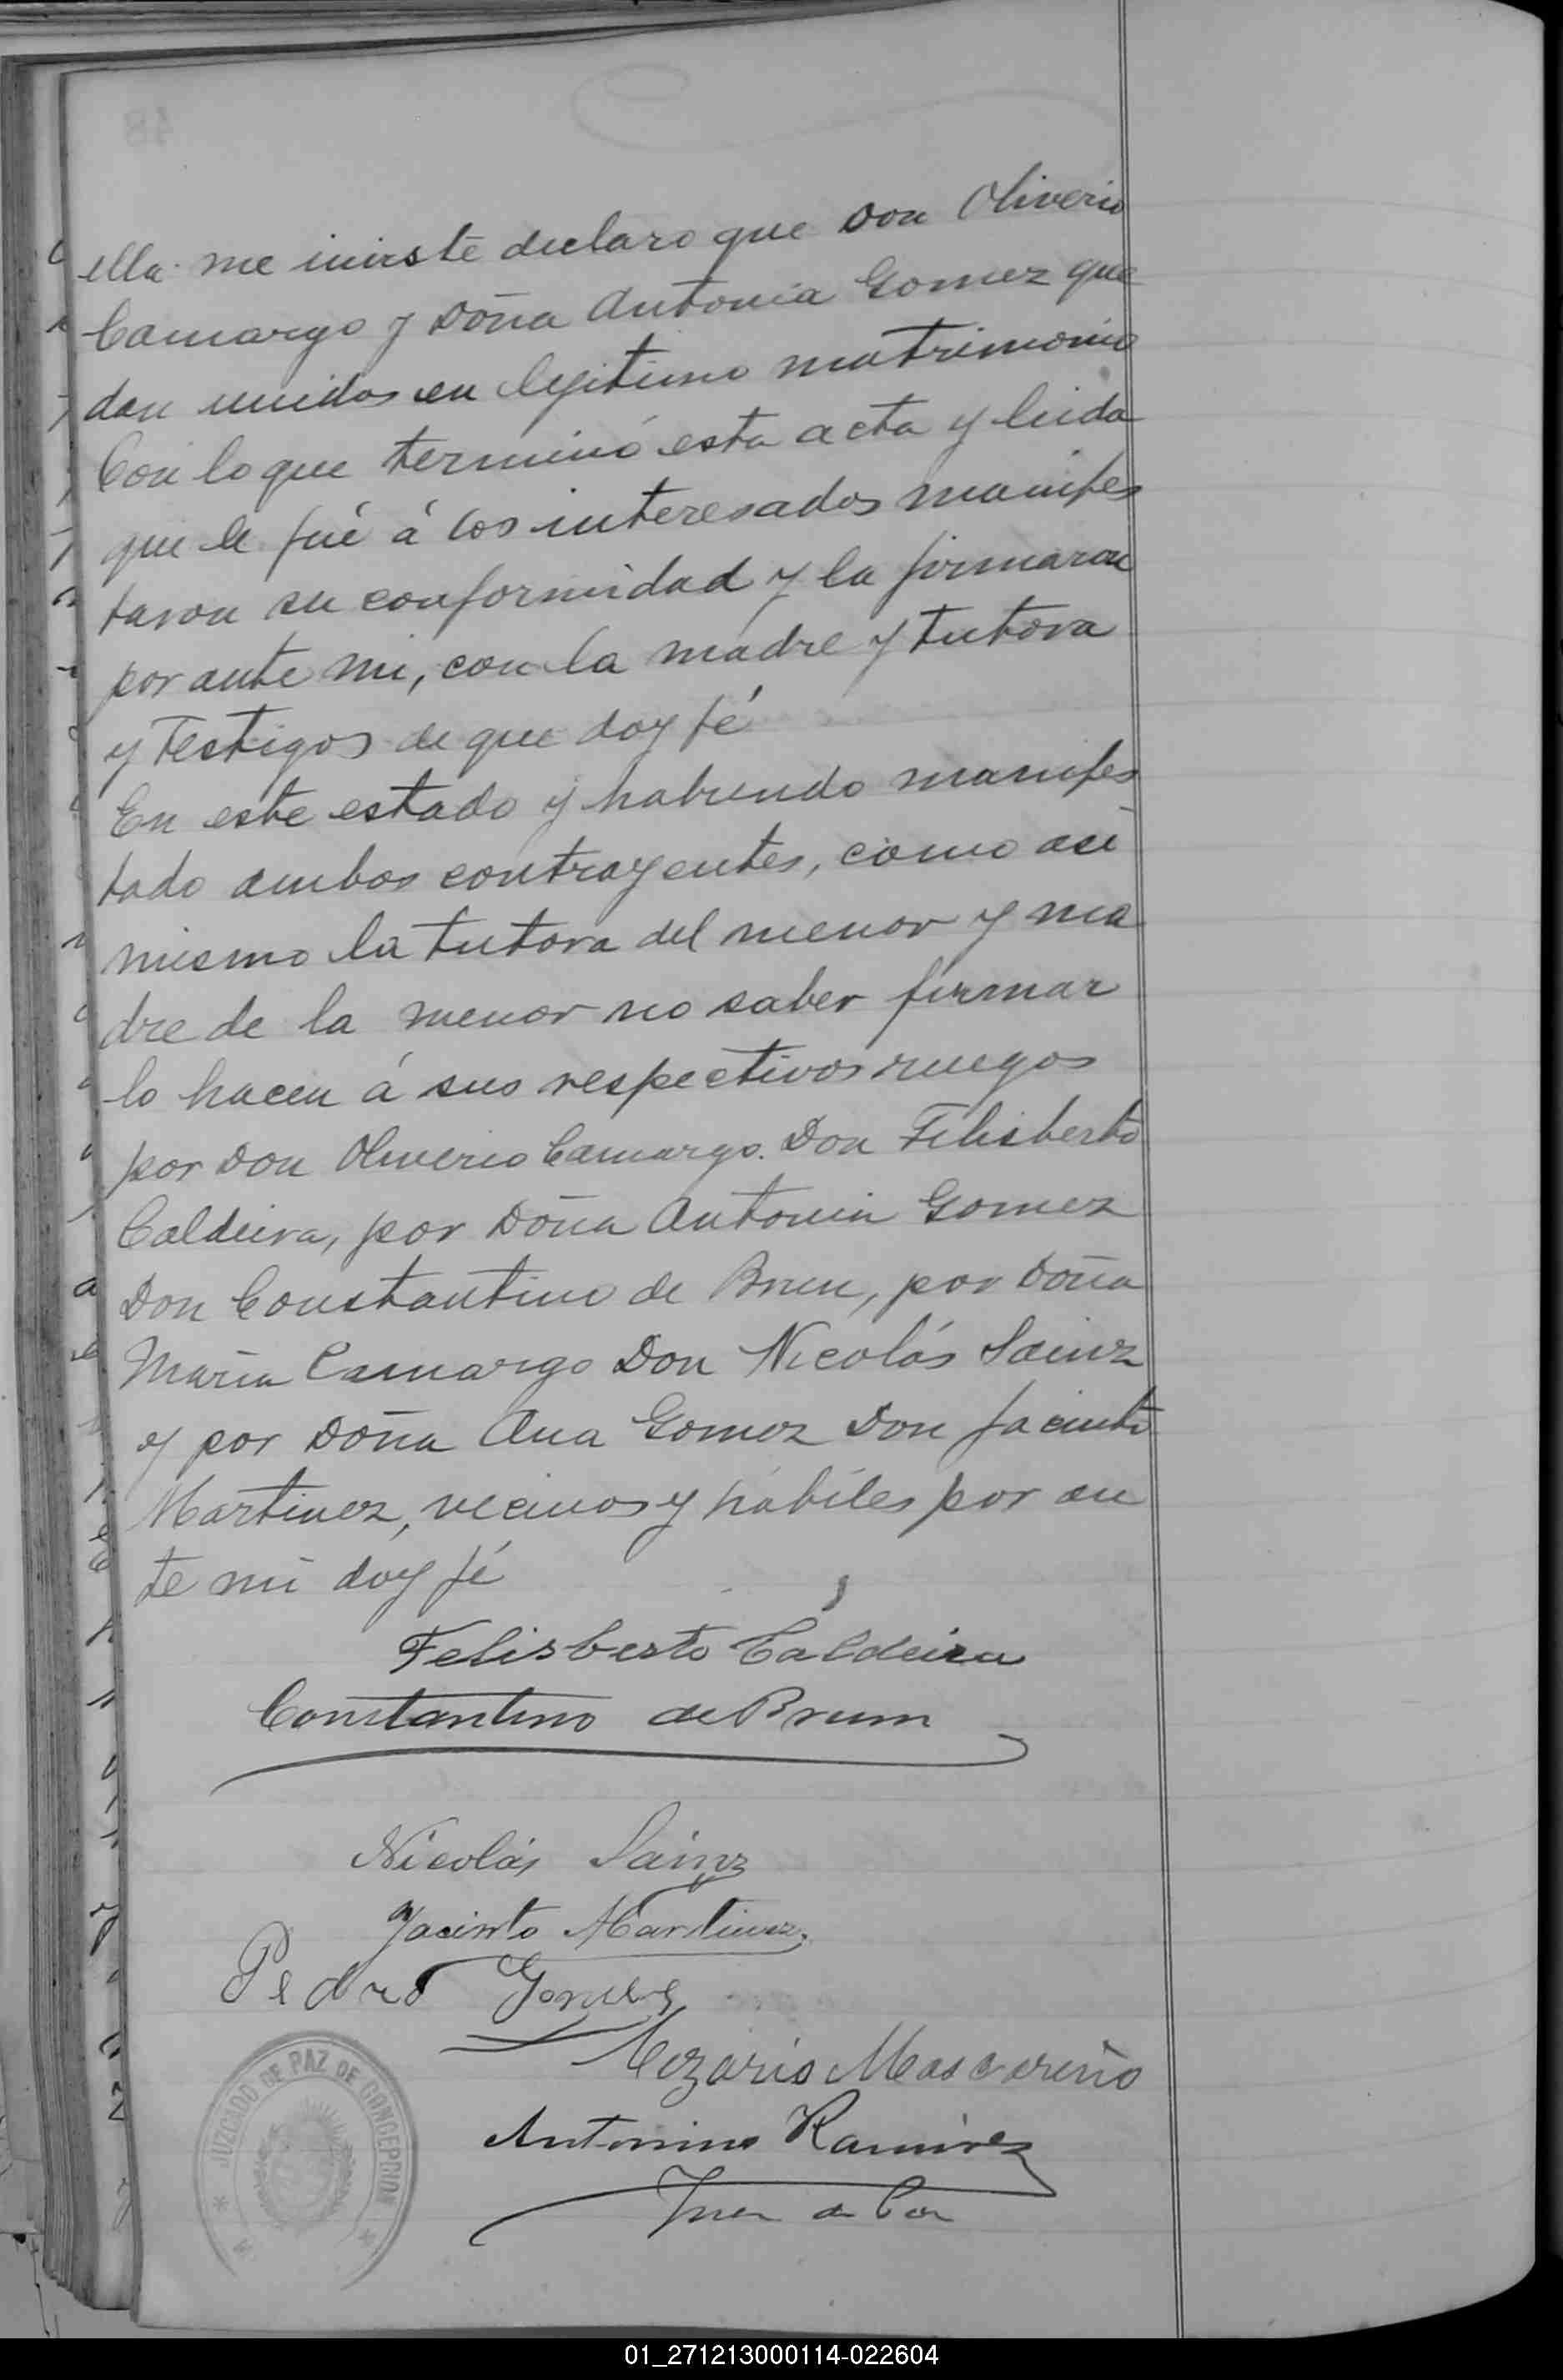 48
ella me inviste declaro que Don Oliverio
Camargo y Doña Antonia Gomez que
dan unidos en legitimo matrimonio
Con lo que terminó esta acta y leida
que le fué á los interesados manifes
taron su conformidad y la firmaron
por ante mi, con la madre y tutora
y testigos de que doy fé
En este estado y habiendo manifes
tado ambos contrayentes, como asi
mismo la tutora del menor y ma
dre de la menor no saber firmar
lo hacen á sus respectivos ruegos
por Don Oliverio Camargo. Don Felisberto
Caldeira, por Doña Antonia Gomez
Don Constantino de Brum, por Doña
Maria Camargo Don Nicolás Sainz
y por Doña Ana Gomez Don Jacinto
Martinez, vecinos y hábiles por an
te mi doy fé
Felisberto Caldeira
Constantino de Brum
Nicolás Sainz
Jacinto Martinez
Pedro
Mascareño
Antonino Ramirez
Juez de Paz
JUZGADO DE PAZ DE CONCEPCION
01_271213000114-022604